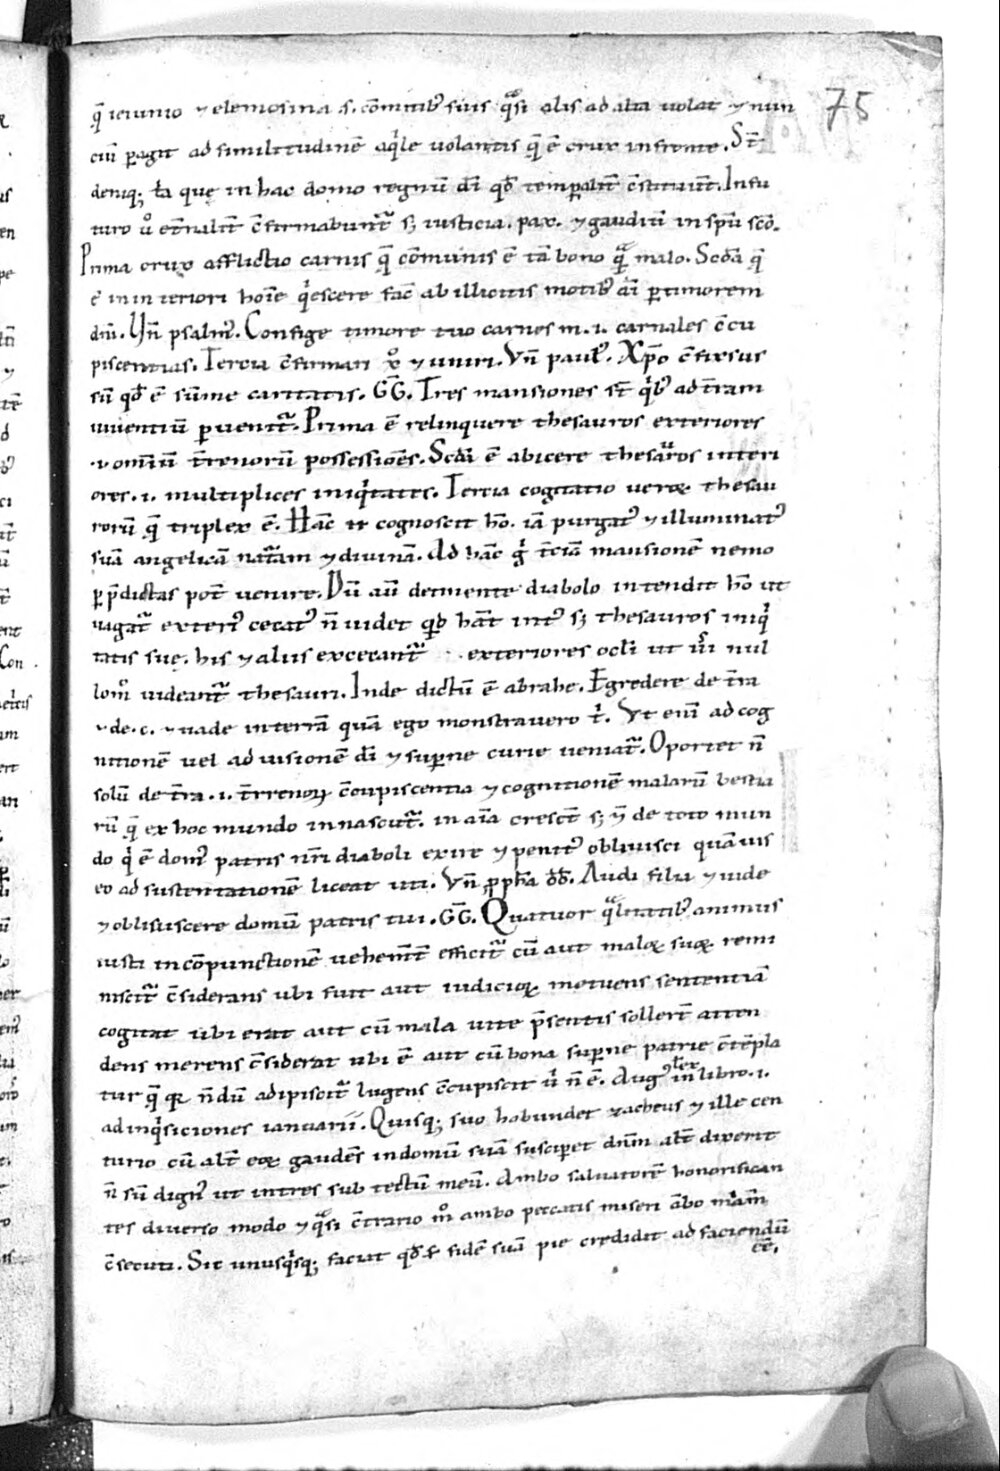 75
q̄ ieiunio ⁊ elemosina .s. cōmitib; suis qͣsi alis ad alta uolat ⁊ nun
ciū ꝑagit ad similitudinē aq̍le uolantis q̄ ē crux in fronte. St̄
deniq; t̄a quę in hac domo regnū dī qd̄ temꝑalit̄ c̄stituunt̄. In fu
turo u̾ et̄nalit̄ c̄firmabunt᷑ s; iusticia. pax. ⁊ gaudiū in spū scō.
Prima crux afflictio carnis q̄ cōmunis ē tā bono quā malo. Scdā q̄
ē in interiori hoīe q̍escere fac̄ ab illicitis motib; aī ꝑ timorem
dn̄i. Vn̄ psalm᷒. Confige timore tuo carnes m. i. carnales c̄cu
piscentias. Tercia c̄firmari xo ⁊ uniri. Vn̄ paul᷒. Xp̄o c̄fixsus
sū qd̄ ē sūme caritatis. GG̅. Tres mansiones st̄ q̍b; ad t̄ram
uiuentiū ꝑuenit᷑. Prima ē relinquere thesauros exteriores
.i. omniū t̄renorū possessiones. Scdā ē abicere thesauros interi
ores. i. multiplices iniq̍tates. Tercia cogitatio ueroꝝ thesau
rorū q̄ triplex ē. Hāc it cognoscit hō. iā purgat᷒ ⁊ illuminat᷒
suā angelicā nat᷑am ⁊ diuinā. Ad hāc g̍ t̄ciā mansionē nemo
ꝑ p̄dictas pot̄ uenire. Dū aū demente diabolo intendit hō ut
uagat᷑ exteri᷒ cecat᷒ n̄ uidet qd̄ hāt int᷒ s; thesauros iniq̍
tatis suę. his ⁊ aliis excecant᷑ exteriores ocl̄i ut u̍i nul
lom᷒ uideant᷑ thesauri. Inde dictū ē abrahe. Egredere de t̄ra
⁊ de. c. ⁊ uade in terrā quā ego monstrauero t̍. Vt enī ad cog
nitionē uel ad uisionē dī ⁊ suꝑne curie ueniat᷑. Oportet n̄
solū de t̄ra. i. t̄renoꝝ c̄cupiscentia ⁊ cognitionē malarū bestia
rū q̄ ex hoc mundo innascunt᷑. in aīa cresct̄ s; ⁊ de toto mun
do q̍ ē dom᷒ patris nr̄i diaboli exire ⁊ penit᷒ obliuisci quāuis
eo ad sustentationē liceat uti. Vn̄ ꝓpħa dd̄. Audi filia ⁊ uide
⁊ obliuiscere domū patris tui. GG̅. Quatuor q̄litatib; animus
iusti in cōpunctionē uehemt̄ efficit᷑ cū aut maloꝝ suoꝝ remi
niscit᷑ c̄siderans ubi fuit aut iudicioꝝ metuens sententiā
cogitat ubi erat aut cū mala uite p̄sentis sollert̄ atten
dens merens c̄siderat ubi ē aut cū bona suꝑne patrie c̄tēpla
tur q̄ qꝛ n̄dū adipiscit᷑ lugens c̄cupiscit u̍ n̄ ē. Aug᷒ in libro. i.
ad inq̍siciones ianuarii. Quisq; suo habundet zacheus ⁊ ille cen
turio cū alt̄ eoꝝ gaudes̄ in domū suā susciꝑet dn̄m alt̄ dixerit
n̄ sū dign᷒ ut intres sub tectū meū. Ambo saluatorē honorifican
tes diuerso modo ⁊ qͣsi c̄trario mo ambo peccatis miseri ābo mīam
c̄secuti. Sit unusq̍sq; faciat qd̄ s̄ fidē suā pie credidit ad faciendū
ēē.